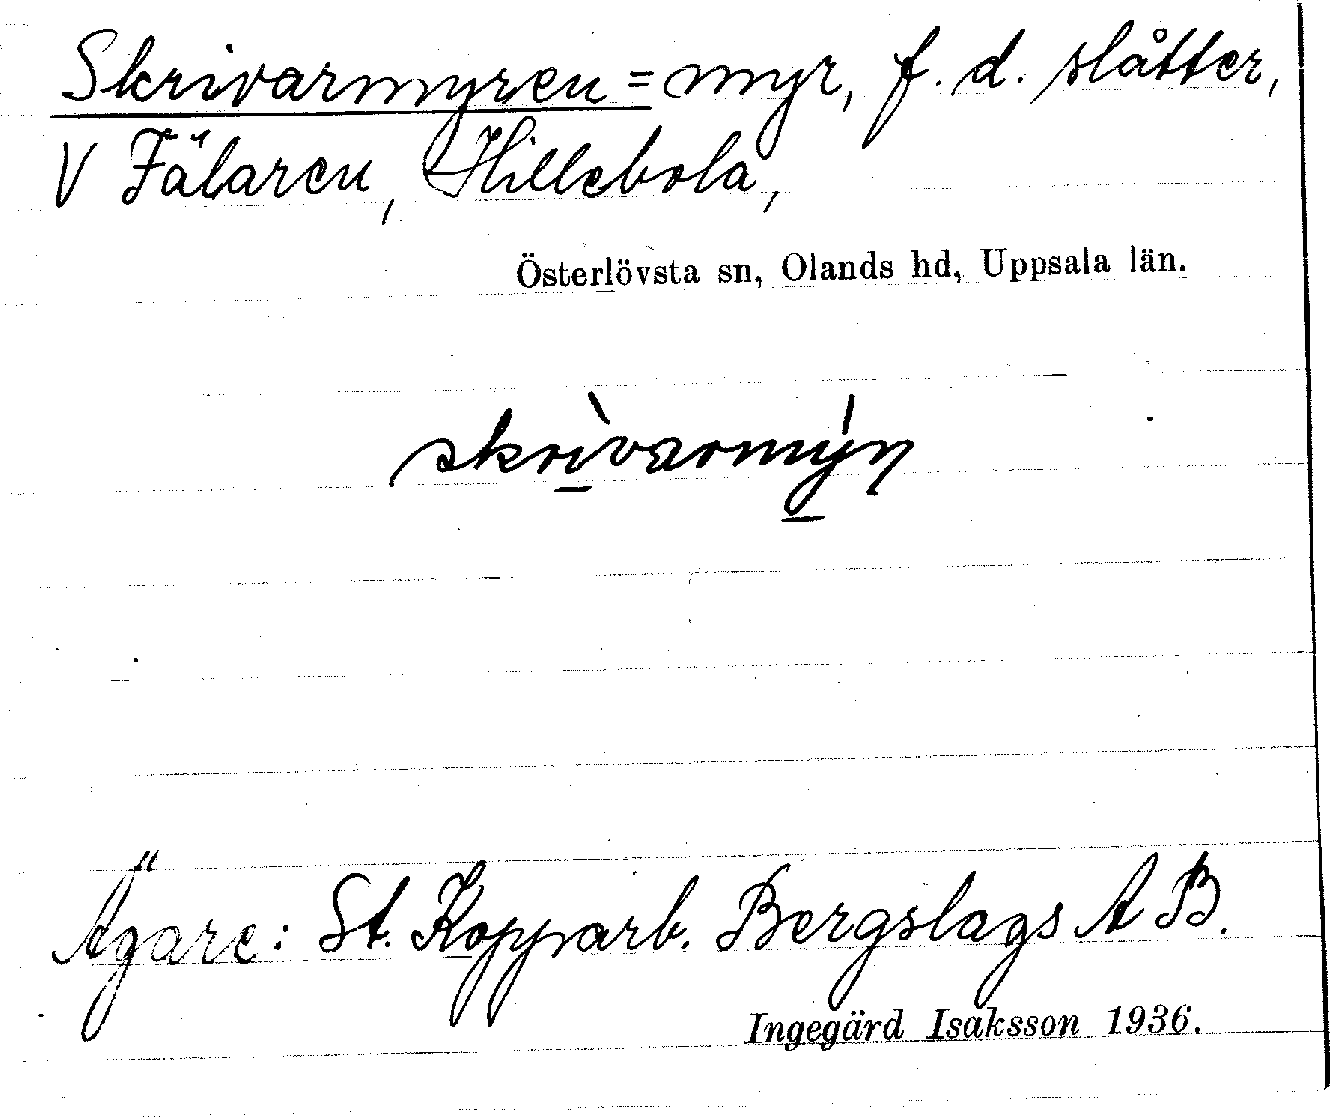 Skrivarmyren = myr, f. d. slåtter,
V Fälaren, Hillebola,
Österlövsta sn, Olands hd, Uppsala län.
skrìvarmýn
Ägare: St. Kopparb. Bergslags AB.
Ingegärd Isaksson 1936.